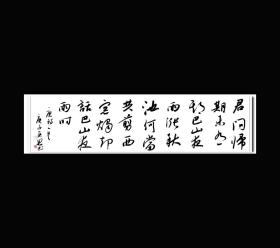 君问归
期未有
期巴山夜
雨涨秋
池何当
共剪西
窗烛却
话巴山夜
雨时
唐诗一首